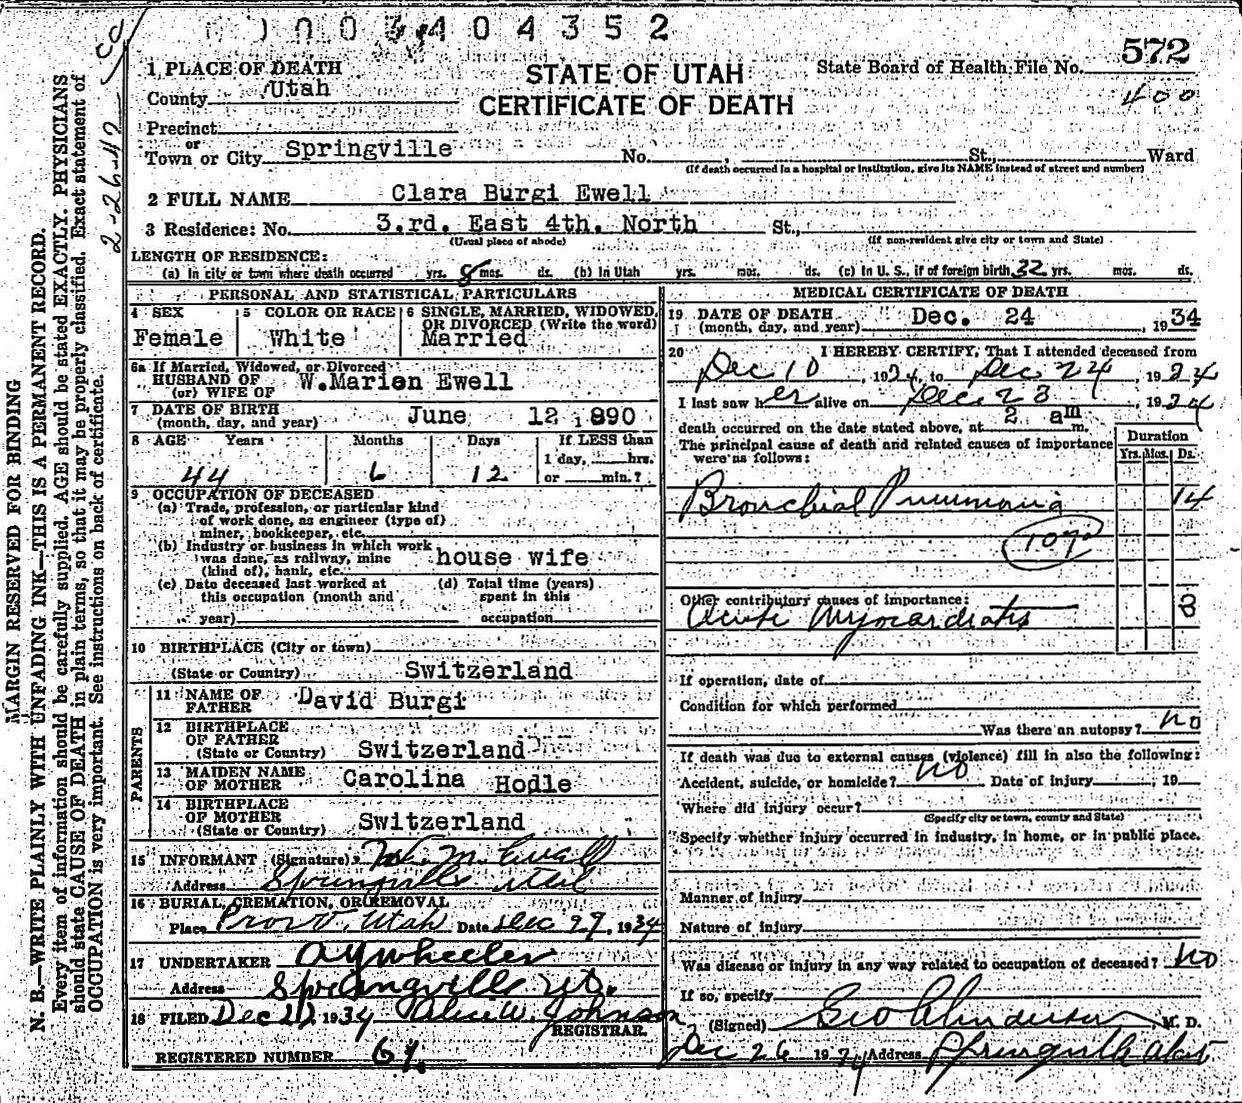 0 0 3 4 0 4 3 5 2
1 PLACE OF DEATH
County Utah
STATE OF UTAH
CERTIFICATE OF DEATH
State Board of Health File No. 572
400
Precinct
or
Town or City Springville No. , St., Ward
(If death occurred in a hospital or institution, give its NAME instead of street and number)
2 FULL NAME Clara Burgi Ewell
3 Residence: No. 3.rd. East 4th. North St.,
(Usual place of abode) (If non-resident give city or town and State)
LENGTH OF RESIDENCE:
(a) In city or town where death occurred yrs. 8 mos. ds. (b) In Utah yrs. mos. ds. (c) In U. S., if of foreign birth 32 yrs. mos. ds.
PERSONAL AND STATISTICAL PARTICULARS
4 SEX
Female
5 COLOR OR RACE
White
6 SINGLE, MARRIED, WIDOWED,
OR DIVORCED (Write the word)
Married
6a If Married, Widowed, or Divorced
HUSBAND OF
(or) WIFE OF W.Marion Ewell
7 DATE OF BIRTH
(month, day, and year) June 12 1890
8 AGE Years Months Days If LESS than
1 day, hrs.
44 6 12 or min.?
9 OCCUPATION OF DECEASED
(a) Trade, profession, or particular kind
of work done, as engineer (type of)
miner, bookkeeper, etc.
(b) Industry or business in which work
was done, as railway, mine
(kind of), bank, etc. house wife
(c) Date deceased last worked at
this occupation (month and
year)
(d) Total time (years)
spent in this
occupation
10 BIRTHPLACE (City or town)
(State or Country) Switzerland
PARENTS
11 NAME OF
FATHER David Burgi
12 BIRTHPLACE
OF FATHER
(State or Country) Switzerland
13 MAIDEN NAME
OF MOTHER Carolina Hodle
14 BIRTHPLACE
OF MOTHER
(State or Country) Switzerland
15 INFORMANT (Signature) W. M. Ewell
Address Springville Utah
16 BURIAL, CREMATION, OR REMOVAL
Place Provo, Utah Date Dec 27, 1934
17 UNDERTAKER A Y Wheeler
Address Springville Ut.
18 FILED Dec 27 1934 Alice W. Johnson
REGISTRAR.
REGISTERED NUMBER 67.
MEDICAL CERTIFICATE OF DEATH
19 DATE OF DEATH
(month, day, and year) Dec. 24 , 1934
20 I HEREBY CERTIFY, That I attended deceased from
Dec 10 , 1934, to Dec 24 , 1934
I last saw her alive on Dec 23 , 1934
death occurred on the date stated above, at 2 am m.
The principal cause of death and related causes of importance
were as follows:
Duration
Yrs. Mos. Ds.
Bronchial Pneumonia 14
107a
Other contributory causes of importance:
Acute Myocardiatis 3
If operation, date of
Condition for which performed
Was there an autopsy? no
If death was due to external causes (violence) fill in also the following:
Accident, suicide, or homicide? no Date of injury , 19
Where did injury occur?
(Specify city or town, county and State)
Specify whether injury occurred in industry, in home, or in public place.
Manner of injury
Nature of injury
Was disease or injury in any way related to occupation of deceased? No
If so, specify
(Signed) Geo Anderson M. D.
Dec 26 1934 Address Springville Utah
MARGIN RESERVED FOR BINDING
N. B.—WRITE PLAINLY WITH UNFADING INK—THIS IS A PERMANENT RECORD.
Every item of information should be carefully supplied. AGE should be stated EXACTLY. PHYSICIANS
should state CAUSE OF DEATH in plain terms, so that it may be properly classified. Exact statement of
OCCUPATION is very important. See instructions on back of certificate.
2-26-42